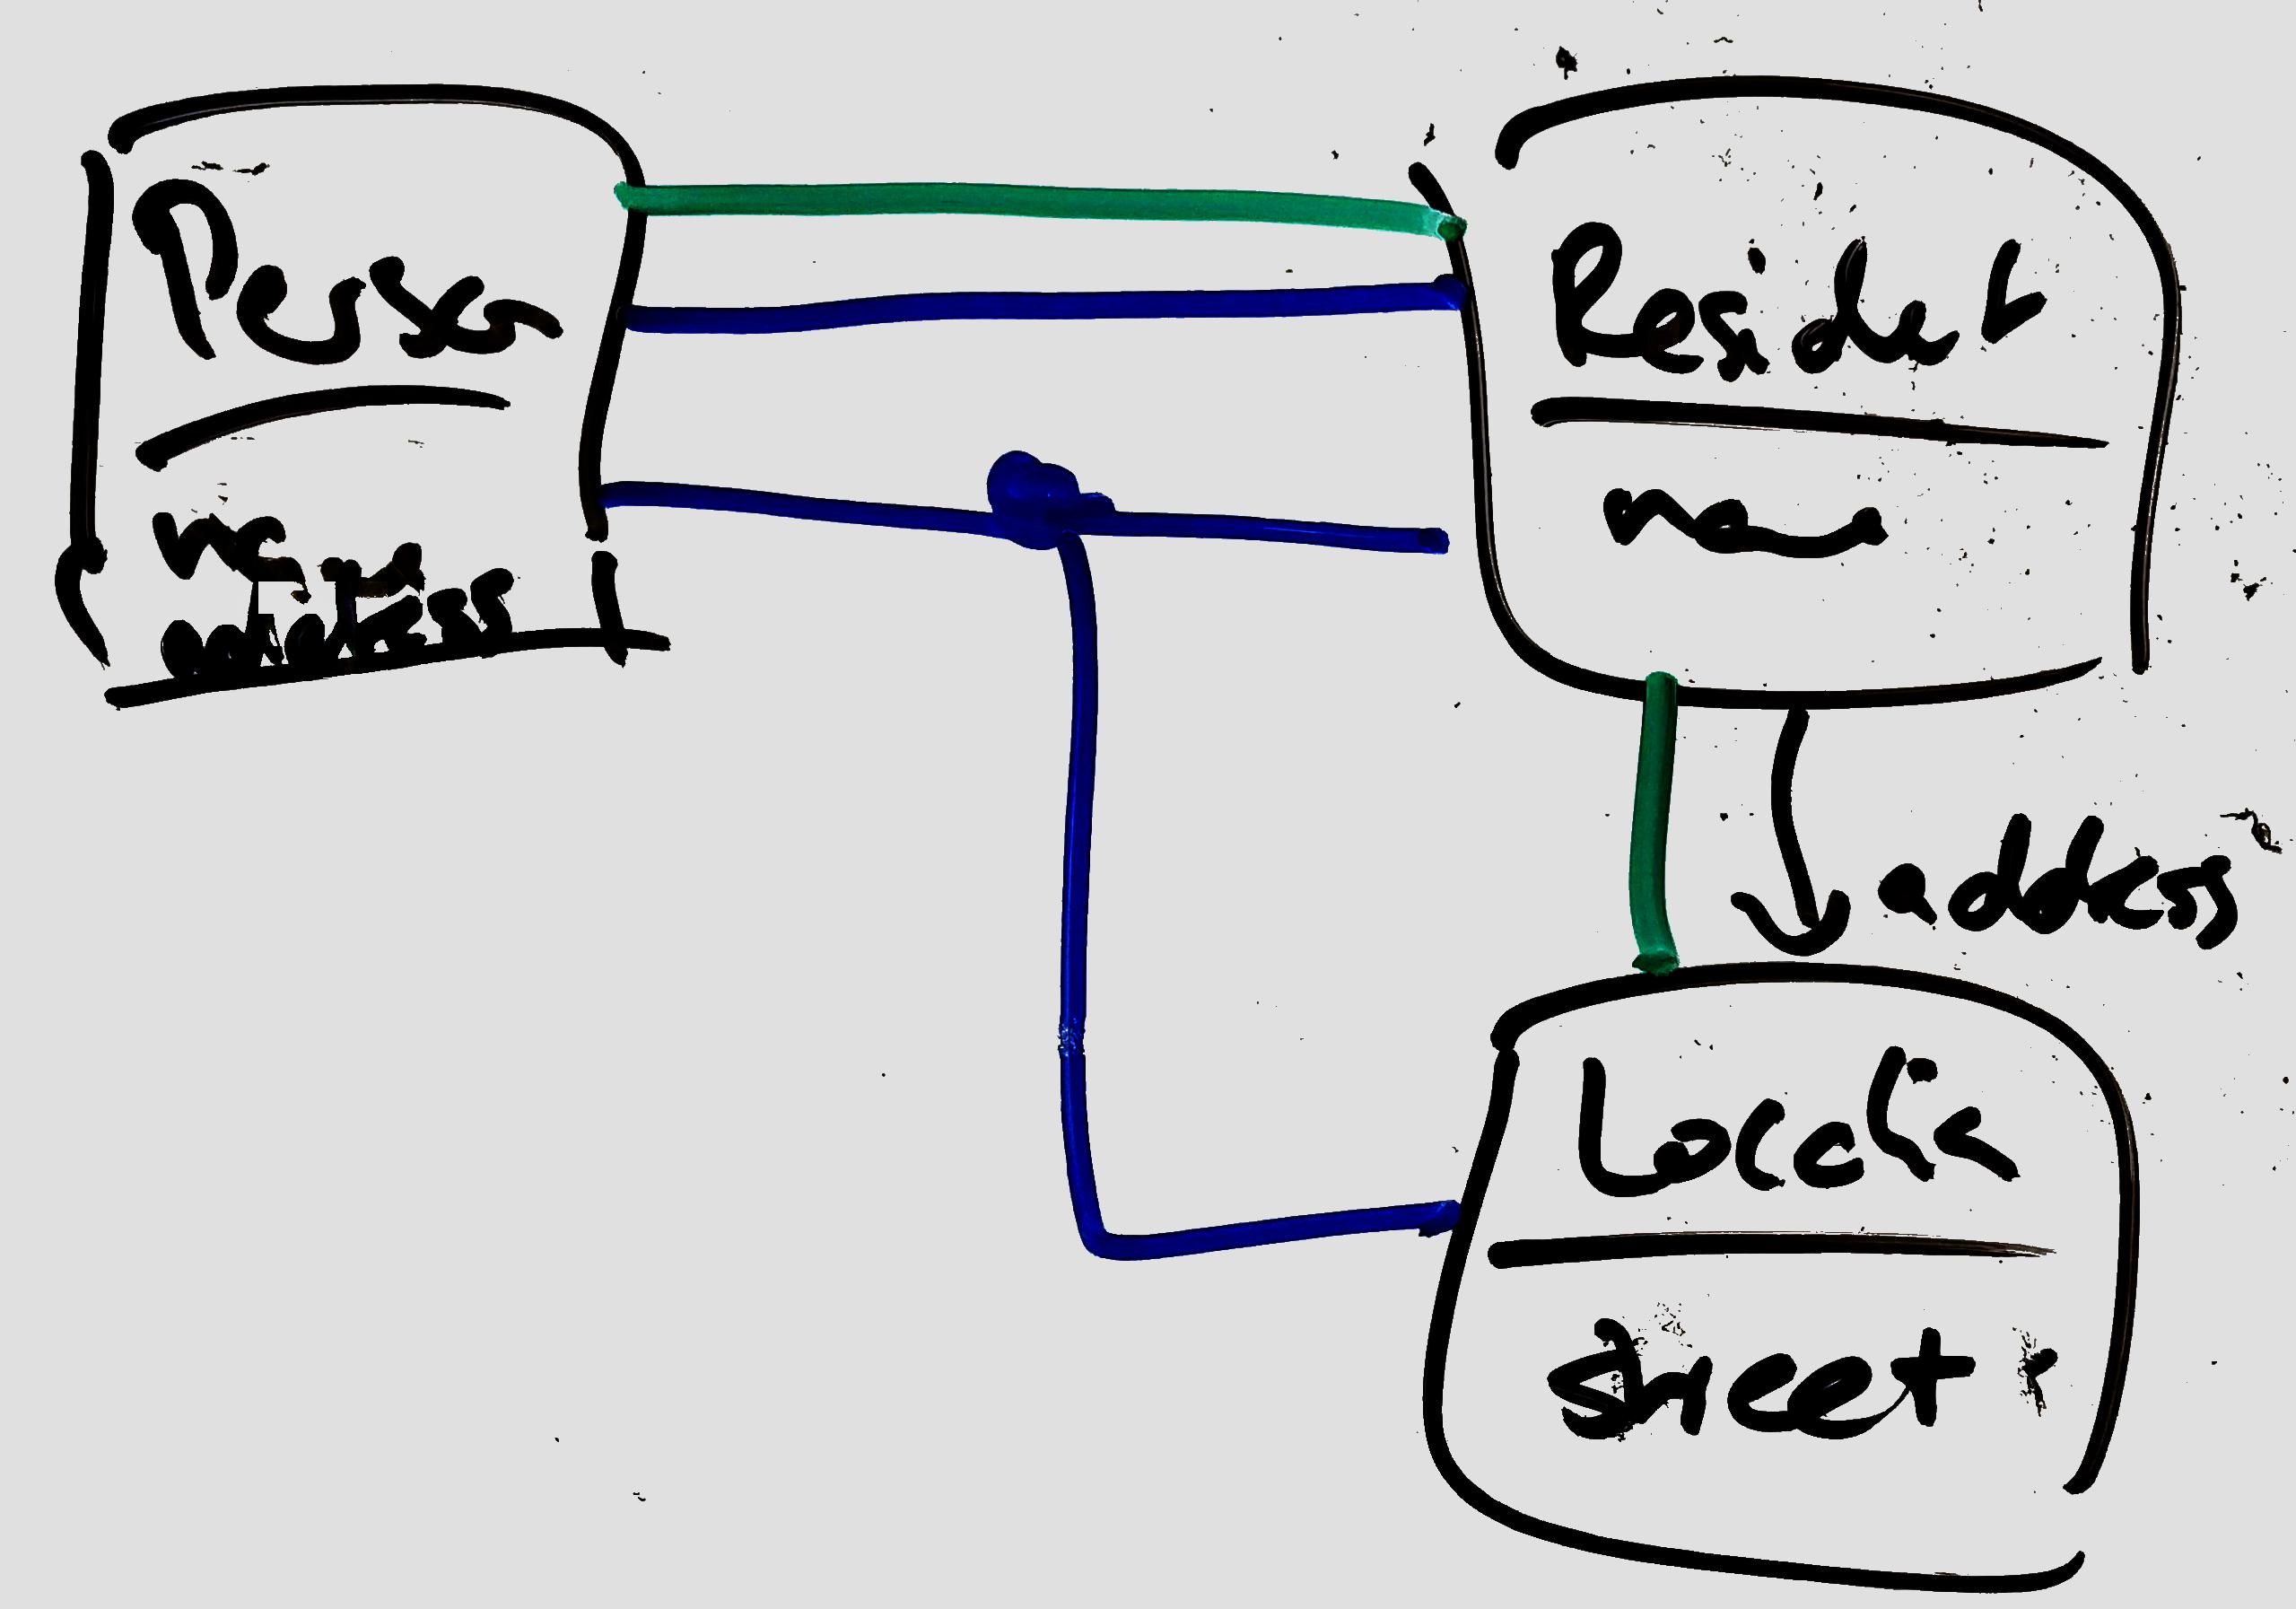 Person
name
address
Resident
name
address
Location
street